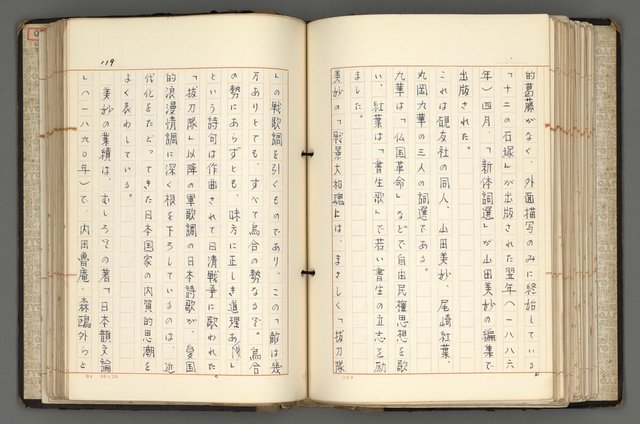 的葛藤がなく、外面描写のみに終始している
「十二の石塚」が出版された翌年(一八八六
年)四月、「新体詞選」が山田美妙の編集で
出版された。
これは硯友社の同人、山田美妙、尾崎紅葉、
丸岡九華の三人の詞選である。
九華は「仏国革命」などで自由民権思想を歌
い、紅葉は「書生歌」で若い書生の立志を励
ました。
美妙の「戦景大和魂」は、まさしく「抜刀隊
119
」の戦歌調を引くものであり、この「敵は幾
万ありとても、すべて烏合の勢なるぞ。烏合
の勢にあらずとも、味方に正しき道理あり」
という詩句は作曲されて日清戦争に歌われた
「抜刀隊」以降の軍歌調の日本詩歌が、愛国
的浪漫情調に深く根を下ろしているのは、近
代化をたどってきた日本国家の内質的思潮を
よく表わしている。
美妙の業績は、むしろその著「日本韻文論
」(一八九〇年)で、内田魯庵、森鴎外らと